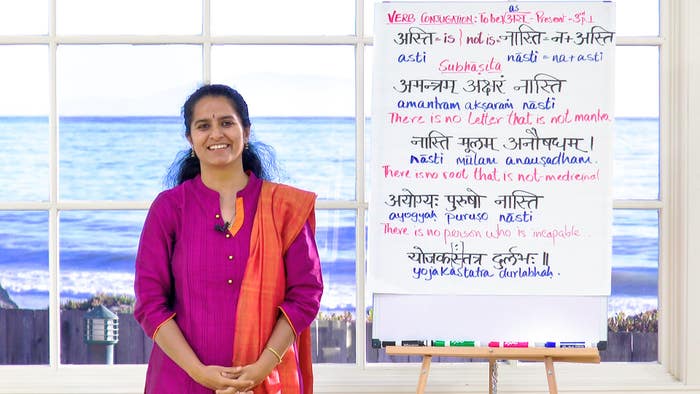 VERB CONJUGATION: To be अस् as - Present - 3rd 1
अस्ति = is | not is = नास्ति = न + अस्ति
asti nāsti = na + asti
Subhāṣita
अमन्त्रम् अक्षरं नास्ति
amantram akṣaraṁ nāsti
There is no letter that is not mantra
नास्ति मूलम् अनौषधम् |
nāsti mūlam anauṣadham.
There is no root that is not-medicinal
अयोग्यः पुरुषो नास्ति
ayogyaḥ puruṣo nāsti
There is no person who is incapable...
योजकस्तत्र दुर्लभः ॥
yojakastatra durlabhaḥ.